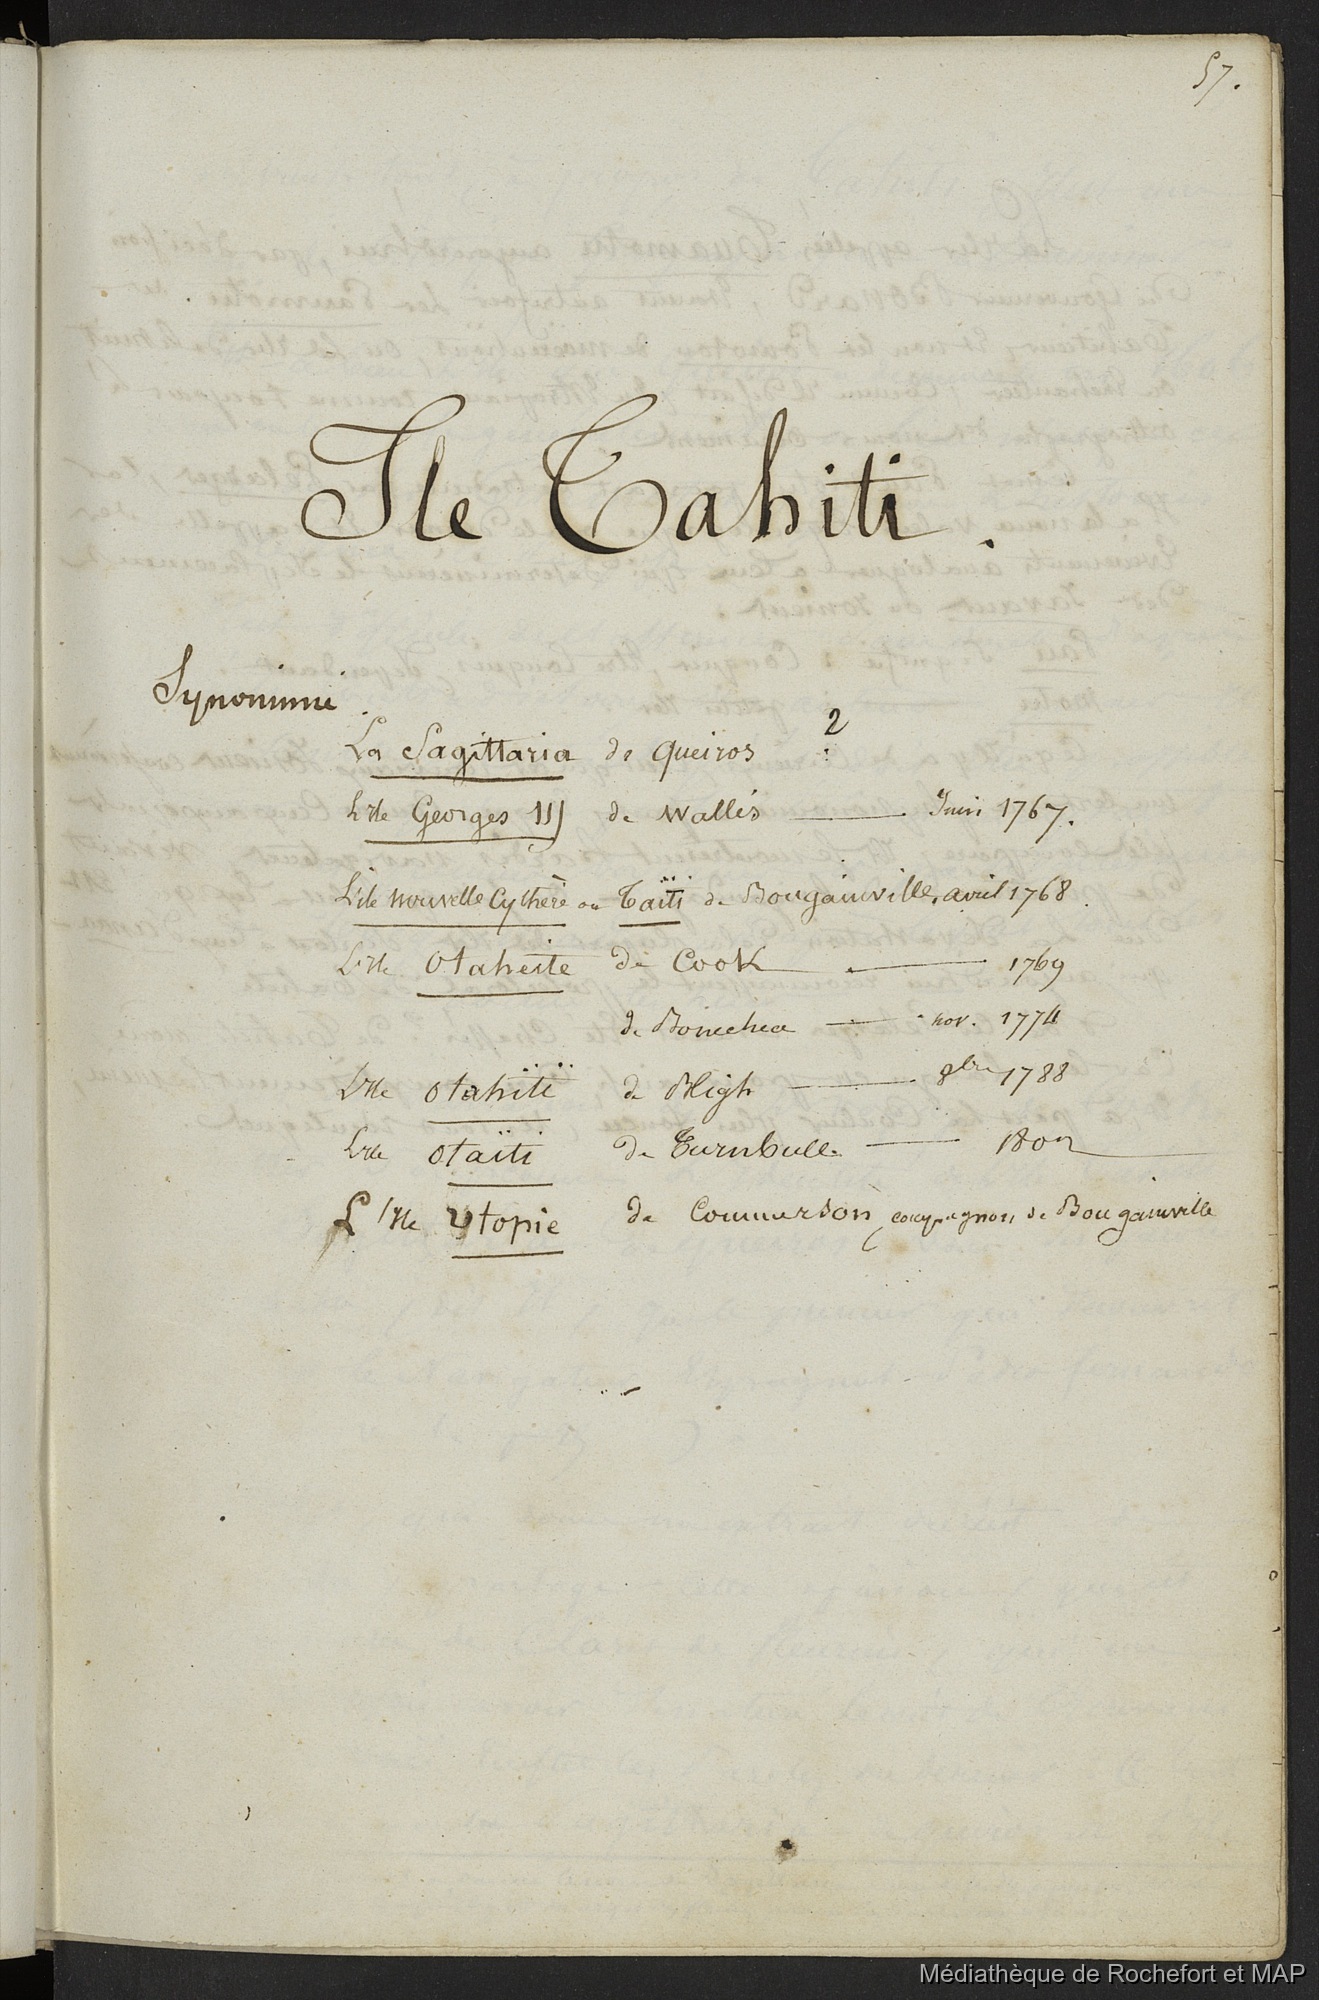 57.
Ile Tahiti.
Synonimie.
La Sagittaria de Queiros ?
L'Ile Georges III de Wallis — Juin 1767.
L'ile nouvelle Cythère ou Taïti de Bougainville, avril 1768.
L'Ile Otaheite de Cook — 1769
de Bonechea — nov. 1774
L'Ile Otahïtï de Bligh — 8bre 1788
L'Ile Otaïti de Turnbull — 1802
L'Ile Utopie de Commerson, compagnon de Bougainville
Médiathèque de Rochefort et MAP